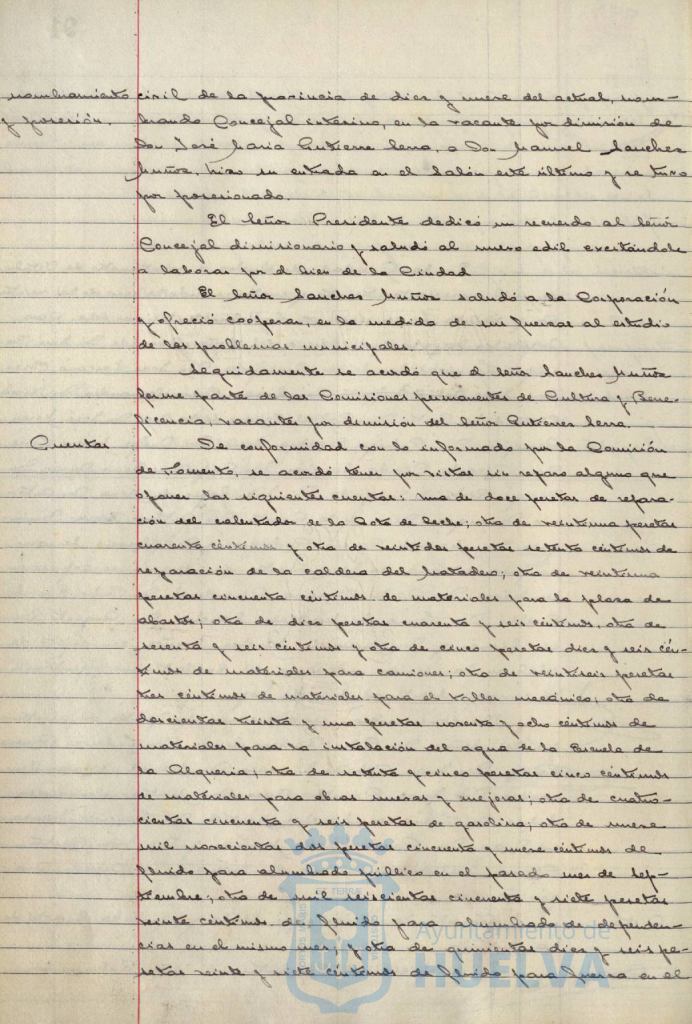 nombramiento civil de la provincia de diez y nueve del actual, nom-
y posesión. brando Concejal interino, en la vacante por dimisión de
Don José Maria Gutierrez Serra, a Don Manuel Sanchez
Muñoz, hizo su entrada en el Salón este último y se tuvo
por posesionado.
El Señor Presidente dedicó un recuerdo al Señor
Concejal dimisionario y saludó al nuevo edil excitándole
a laborar por el bien de la Ciudad
El Señor Sanchez Muñoz saludó a la Corporación
y ofreció cooperar, en la medida de sus fuerzas al estudio
de los problemas municipales.
Seguidamente se acordó que el Señor Sanchez Muñoz
forme parte de las Comisiones permanentes de Cultura y Bene-
ficencia, vacantes por dimisión del Señor Gutierrez Serra.
Cuentas De conformidad con lo informado por la Comisión
de Fomento, se acordó tener por vistas sin reparo alguno que
oponer las siguientes cuentas: una de doce pesetas de repara-
ción del calentador de la Gota de Leche; otra de veintiuna pesetas
cuarenta céntimos y otra de veintidos pesetas setenta céntimos de
reparación de la caldera del Matadero; otra de veintiuna
pesetas cincuenta céntimos de materiales para la plaza de
abastos; otra de diez pesetas cuarenta y seis céntimos, otra de
sesenta y seis céntimos y otra de cinco pesetas diez y seis cén-
timos de materiales para camiones; otra de veintiseis pesetas
tres céntimos de materiales para el taller mecánico; otra de
doscientas treinta y una pesetas noventa y ocho céntimos de
materiales para la instalación del agua de la Escuela de
la Alqueria; otra de setenta y cinco pesetas cinco céntimos
de materiales para obras nuevas y mejoras; otra de cuatro-
cientas cincuenta y seis pesetas de gasolina; otra de nueve
mil novecientas dos pesetas cincuenta y nueve céntimos de
fluido para alumbrado público en el pasado mes de Sep-
tiembre; otra de mil seiscientas cincuenta y siete pesetas
veinte céntimos de fluido para alumbrado de dependen-
cias en el mismo mes; y otra de quinientas diez y seis pe-
setas veinte y siete céntimos de fluido para fuerza en el
Ayuntamiento de
HUELVA